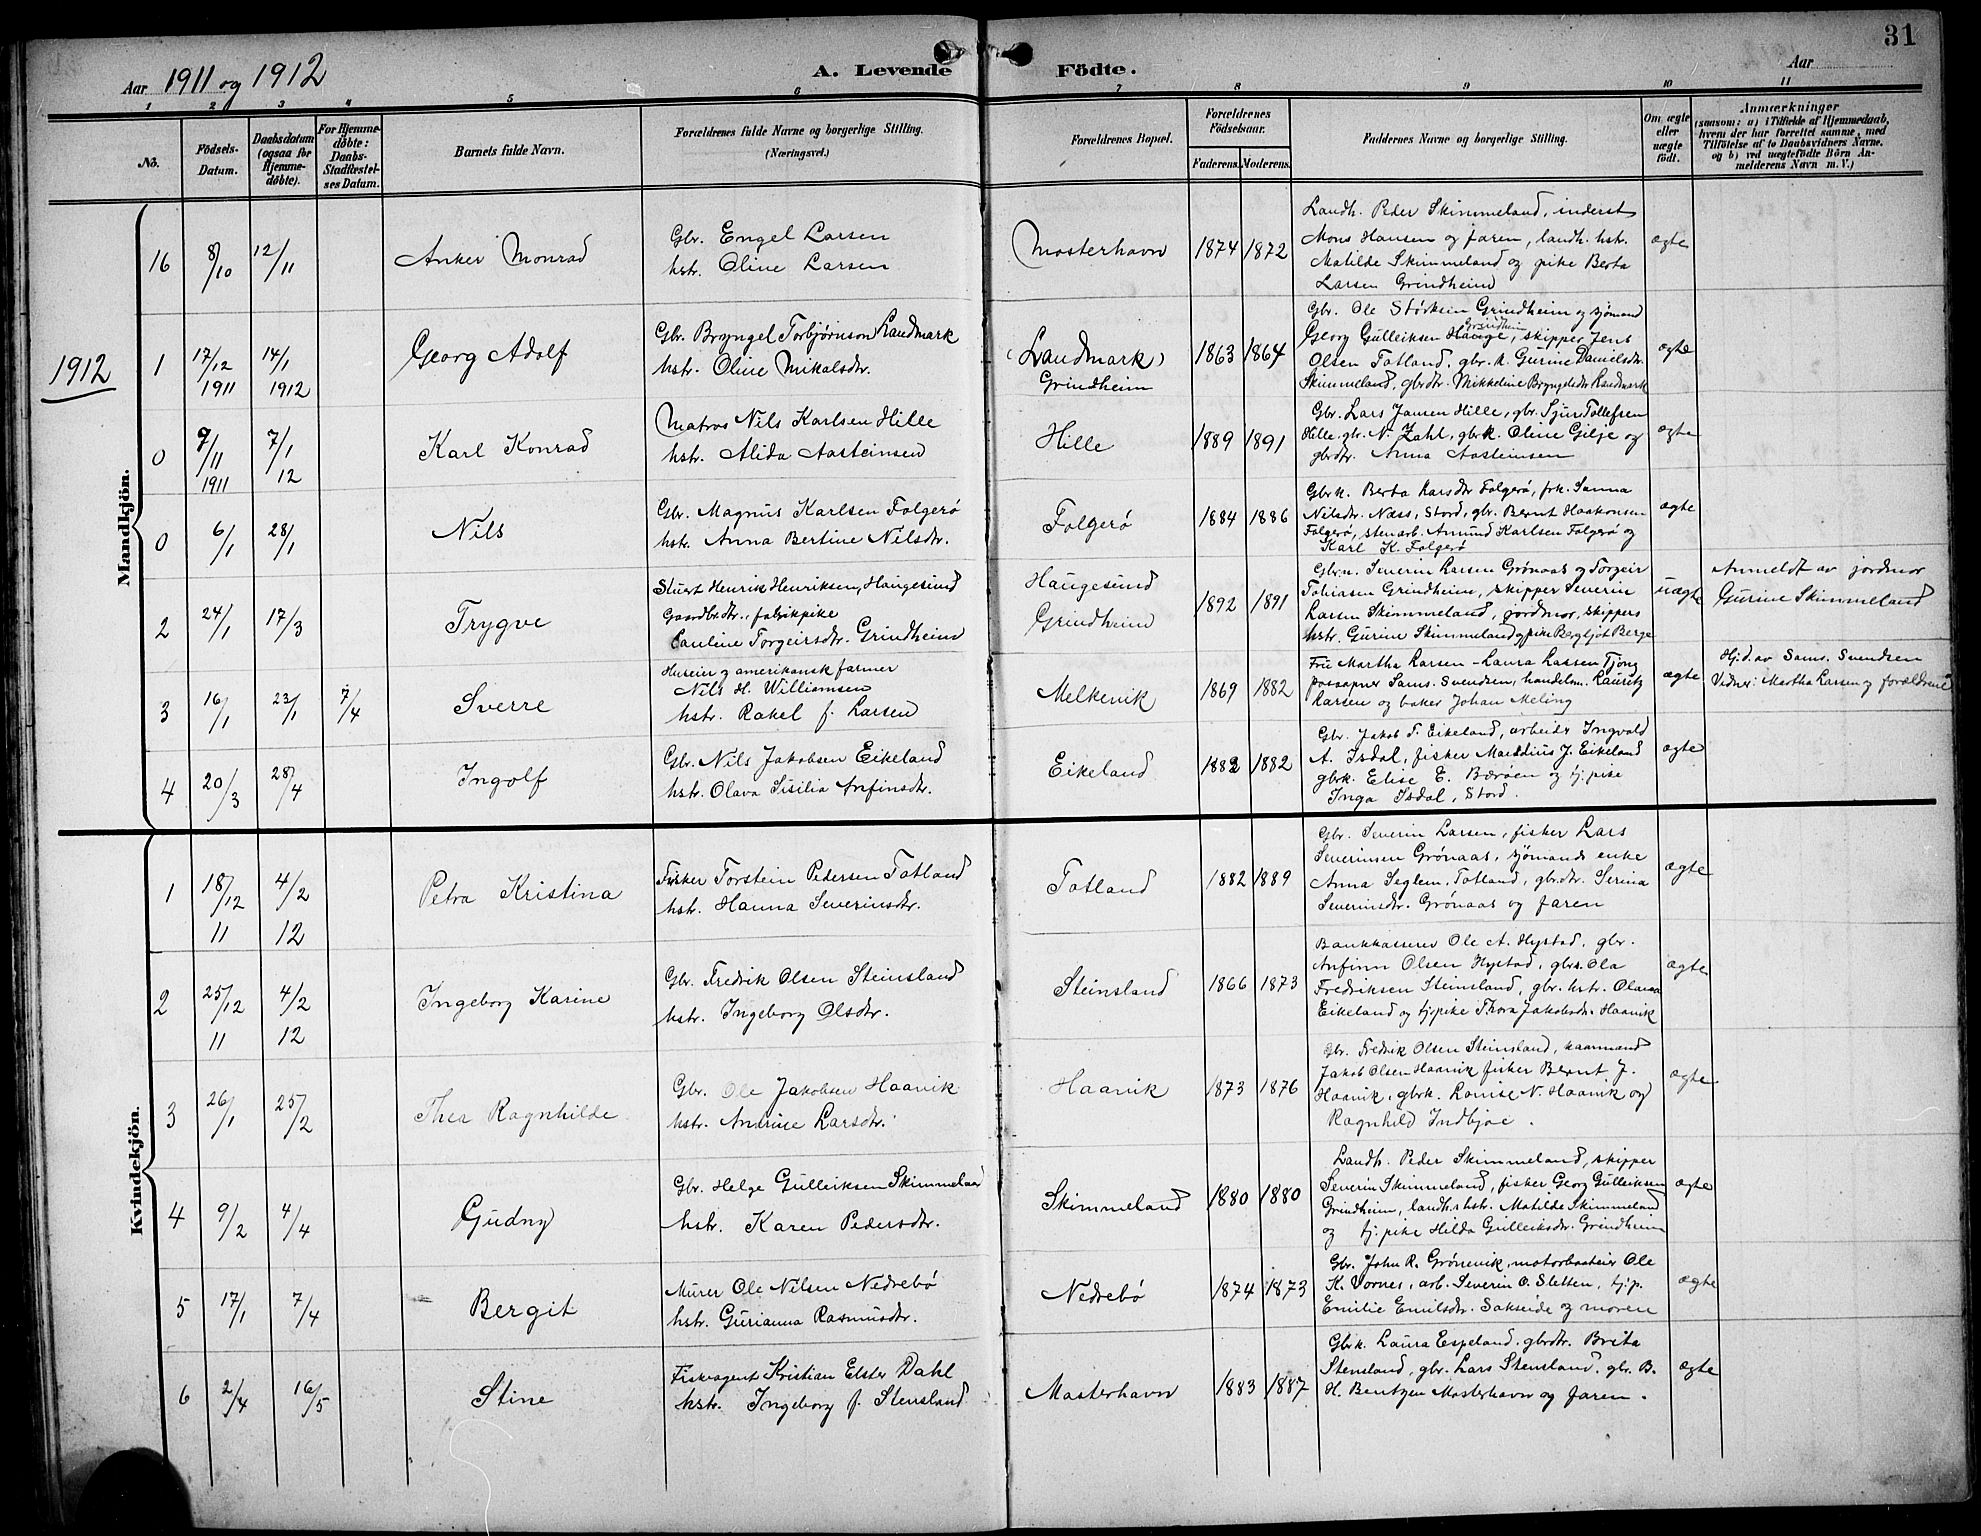 31
Aar 1911 og 1912
A. Levende Födte.
Aar
1 2 3 4 5 6 7 8 9 10 11
No.
Födsels-Datum.
Daabsdatum (ogsaa for Hjemme-döbte).
For Hjemme-döbte: Daabs-Stadfæstel-ses Datum.
Barnets fulde Navn.
Forældrenes fulde Navne og borgerlige Stilling. (Næringsvei.)
Forældrenes Bopæl.
Forældrenes Födselsaar.
Faderens. Moderens.
Faddernes Navne og borgerlige Stilling.
Om ægte eller uægte født.
Anmærkninger
(saasom: a) i Tilfælde af Hjemmedaab, hvem der har forrettet samme, med Tilföielse af to Daabsvidners Navne, og b) ved uægtefödte Börn An-melderens Navn m. V.)
Mandkjön.
16 8/10 12/11 Anker Monrad
Gbr. Engel Larsen
hstr. Oline Larsen
Mosterhavn 1874 1872
Landh. Peder Skimmeland, inderst
Mons Hansen og faren, landh. hstr.
Matilde Skimmeland og pike Berta
Larsen Grindheim
ægte
1912
1 17/12 1911 14/1 1912 Georg Adolf
Gbr. Bryngel Torbjørnson Landmark
hstr. Oline Mikalsdtr.
(Landmark)
Grindheim
1863 1864
Gbr. Ole Størksen Grindheim og sjömand
Georg Gulleiksen Hauge, Grindheim skipper Jens
Olsen Totland, gbr. k. Gurine Danielsdtr.
Skimmeland, gbrdtr. Mikkeline Bryngelsdtr Landmark
ægte
0 9/11 1911 7/1 12 Karl Konrad
Matros Nils Karlsen Hille
hstr. Alida Aasteinsen
Hille 1889 1891
Gbr. Lars Jansen Hille, gbr. Sjur Tollefsen
Hille, gbr. N. Zahl, gbrk. Oline Gilje og
gbrdtr. Anna Aasteinsen
ægte
0 6/1 28/1 Nils
Gbr. Magnus Karlsen Folgerø
hstr. Anna Bertine Nilsdtr.
Folgerø 1884 1886
Gbrk. Berta Larsdtr Folgerø, frk. Sanna
Nilsdtr. Næss, Stord, gbr. Bernt Haakonsen
Folgerø, stenarb. Amund Karlsen Folgerø og
Karl K. Folgerø
ægte
2 24/1 17/3 Trygve
Stuert Henrik Henriksen, Haugesund
Gaardbr.dtr., fabrikpike
Pauline Torgeirsdtr. Grindheim
Haugesund
Grindheim
1892 1891
Gbr.n. Severin Larsen Grønaas og Torgeir
Tobiasen Grindheim, skipper Severin
Larsen Skimmeland, jordmor, skippers
hstr. Gurine Skimmeland og pike Bergljot Berge
uægte
Anmeldt av jordmor
Gurine Skimmeland
3 16/1 23/1 7/4 Sverre
Huseier og amerikansk farmer
Nils H. Williamsen
hstr. Rakel f. Larsen
Melkevik 1869 1882
Fru Martha Larsen - Laura Lassen Tjong
postopner Sams. Svendsen, handelsm. Lauritz
Larsen og baker Johan Meling
ægte
Hj.d. av Sams. Svendsen
Vidner: Martha Larsen og forældrene
4 20/3 28/4 Ingolf
Gbr. Nils Jakobsen Eikeland
hstr. Olava Sisilia Anfinsdtr.
Eikeland 1882 1882
Gbr. Jakob T. Eikeland, arbeidr Ingvald
A. Isdal, fisker J. Eikeland
gbrk. Elise E. Bærøen og tj. pike
Inga Isdal, Stord.
ægte
Kvindekjön.
1 18/12 11 4/2 12 Petra Kristina
Fisker Torstein Pedersen Totland
hstr. Hanna Severinsdtr.
Totland 1882 1889
Gbr. Severin Larsen, fisker Lars
Severinsen Grønaas, sjömands enke
Anna Seglem, Totland, gbrdtr. Serina
Severinsdtr. Grønaas og faren
ægte
2 25/12 11 4/2 12 Ingeborg Karine
Gbr. Fredrik Olsen Steinsland
hstr. Ingeborg Olsdtr.
Steinsland 1866 1873
Bankkasserer Ole A. Hystad, gbr.
Anfinn Olsen Hystad, gbrs. Ola
Fredriksen Steinsland, gbr. hstr. Olava
Eikeland og tj.pike Thora Jakobsdtr. Haavik
ægte
3 26/1 25/2 Thea Ragnhilde
Gbr. Ole Jakobsen Haavik
hstr. Andrine Larsdtr.
Haavik 1873 1876
Gbr. Fredrik Olsen Steinsland, kaarmand
Jakob Olsen Haavik fisker Bernt J.
Haavik, gbrk. Lovise N. Haavik og
Ragnhild Indbjoe.
ægte
4 9/2 4/4 Gudny
Gbr. Helge Gulleiksen Skimmeland
hstr. Karen Pedersdtr.
Skimmeland 1880 1880
Landh. Peder Skimmeland, skipper
Severin Skimmeland, fisker Georg Gulleiksen
Grindheim, landh.s hstr. Matilde Skimmeland
og tj. pike Hilda Gulleiksdtr. Grindheim
ægte
5 17/1 7/4 Bergit
Murer Ole Nilsen Nedrebø
hstr. Gurianna Rasmusdtr.
Nedrebø 1874 1873
Gbr. John R. Grönevik, motorbaateier Ole
K. Vornes, arb. Severin O. Sletten, tj.p.
Emilie Emilsdtr. Sakseide og moren
ægte
6 2/4 16/5 Stine
Fiskeagent Kristian Elster Dahl
hstr. Ingeborg f. Stensland
Mosterhavn 1883 1887
Gbrk. Laura Espeland, gbrdtr. Brita
Stensland, gbr. Lars Stensland, gbr. B.
H. Bentzen Mosterhavn og faren.
ægte